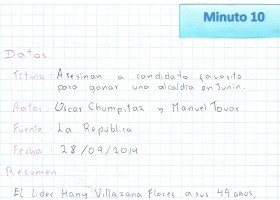 Minuto 10
Datos
Titulo: Asesinan a candidato favorito
para ganar una alcaldía en Junín.
Autor: Oscar Chumpitaz y Manuel Tovar
Fuente: La República
Fecha: 28/09/2014
Resumen
El líder Hany Villazana Flores a sus 49 años,